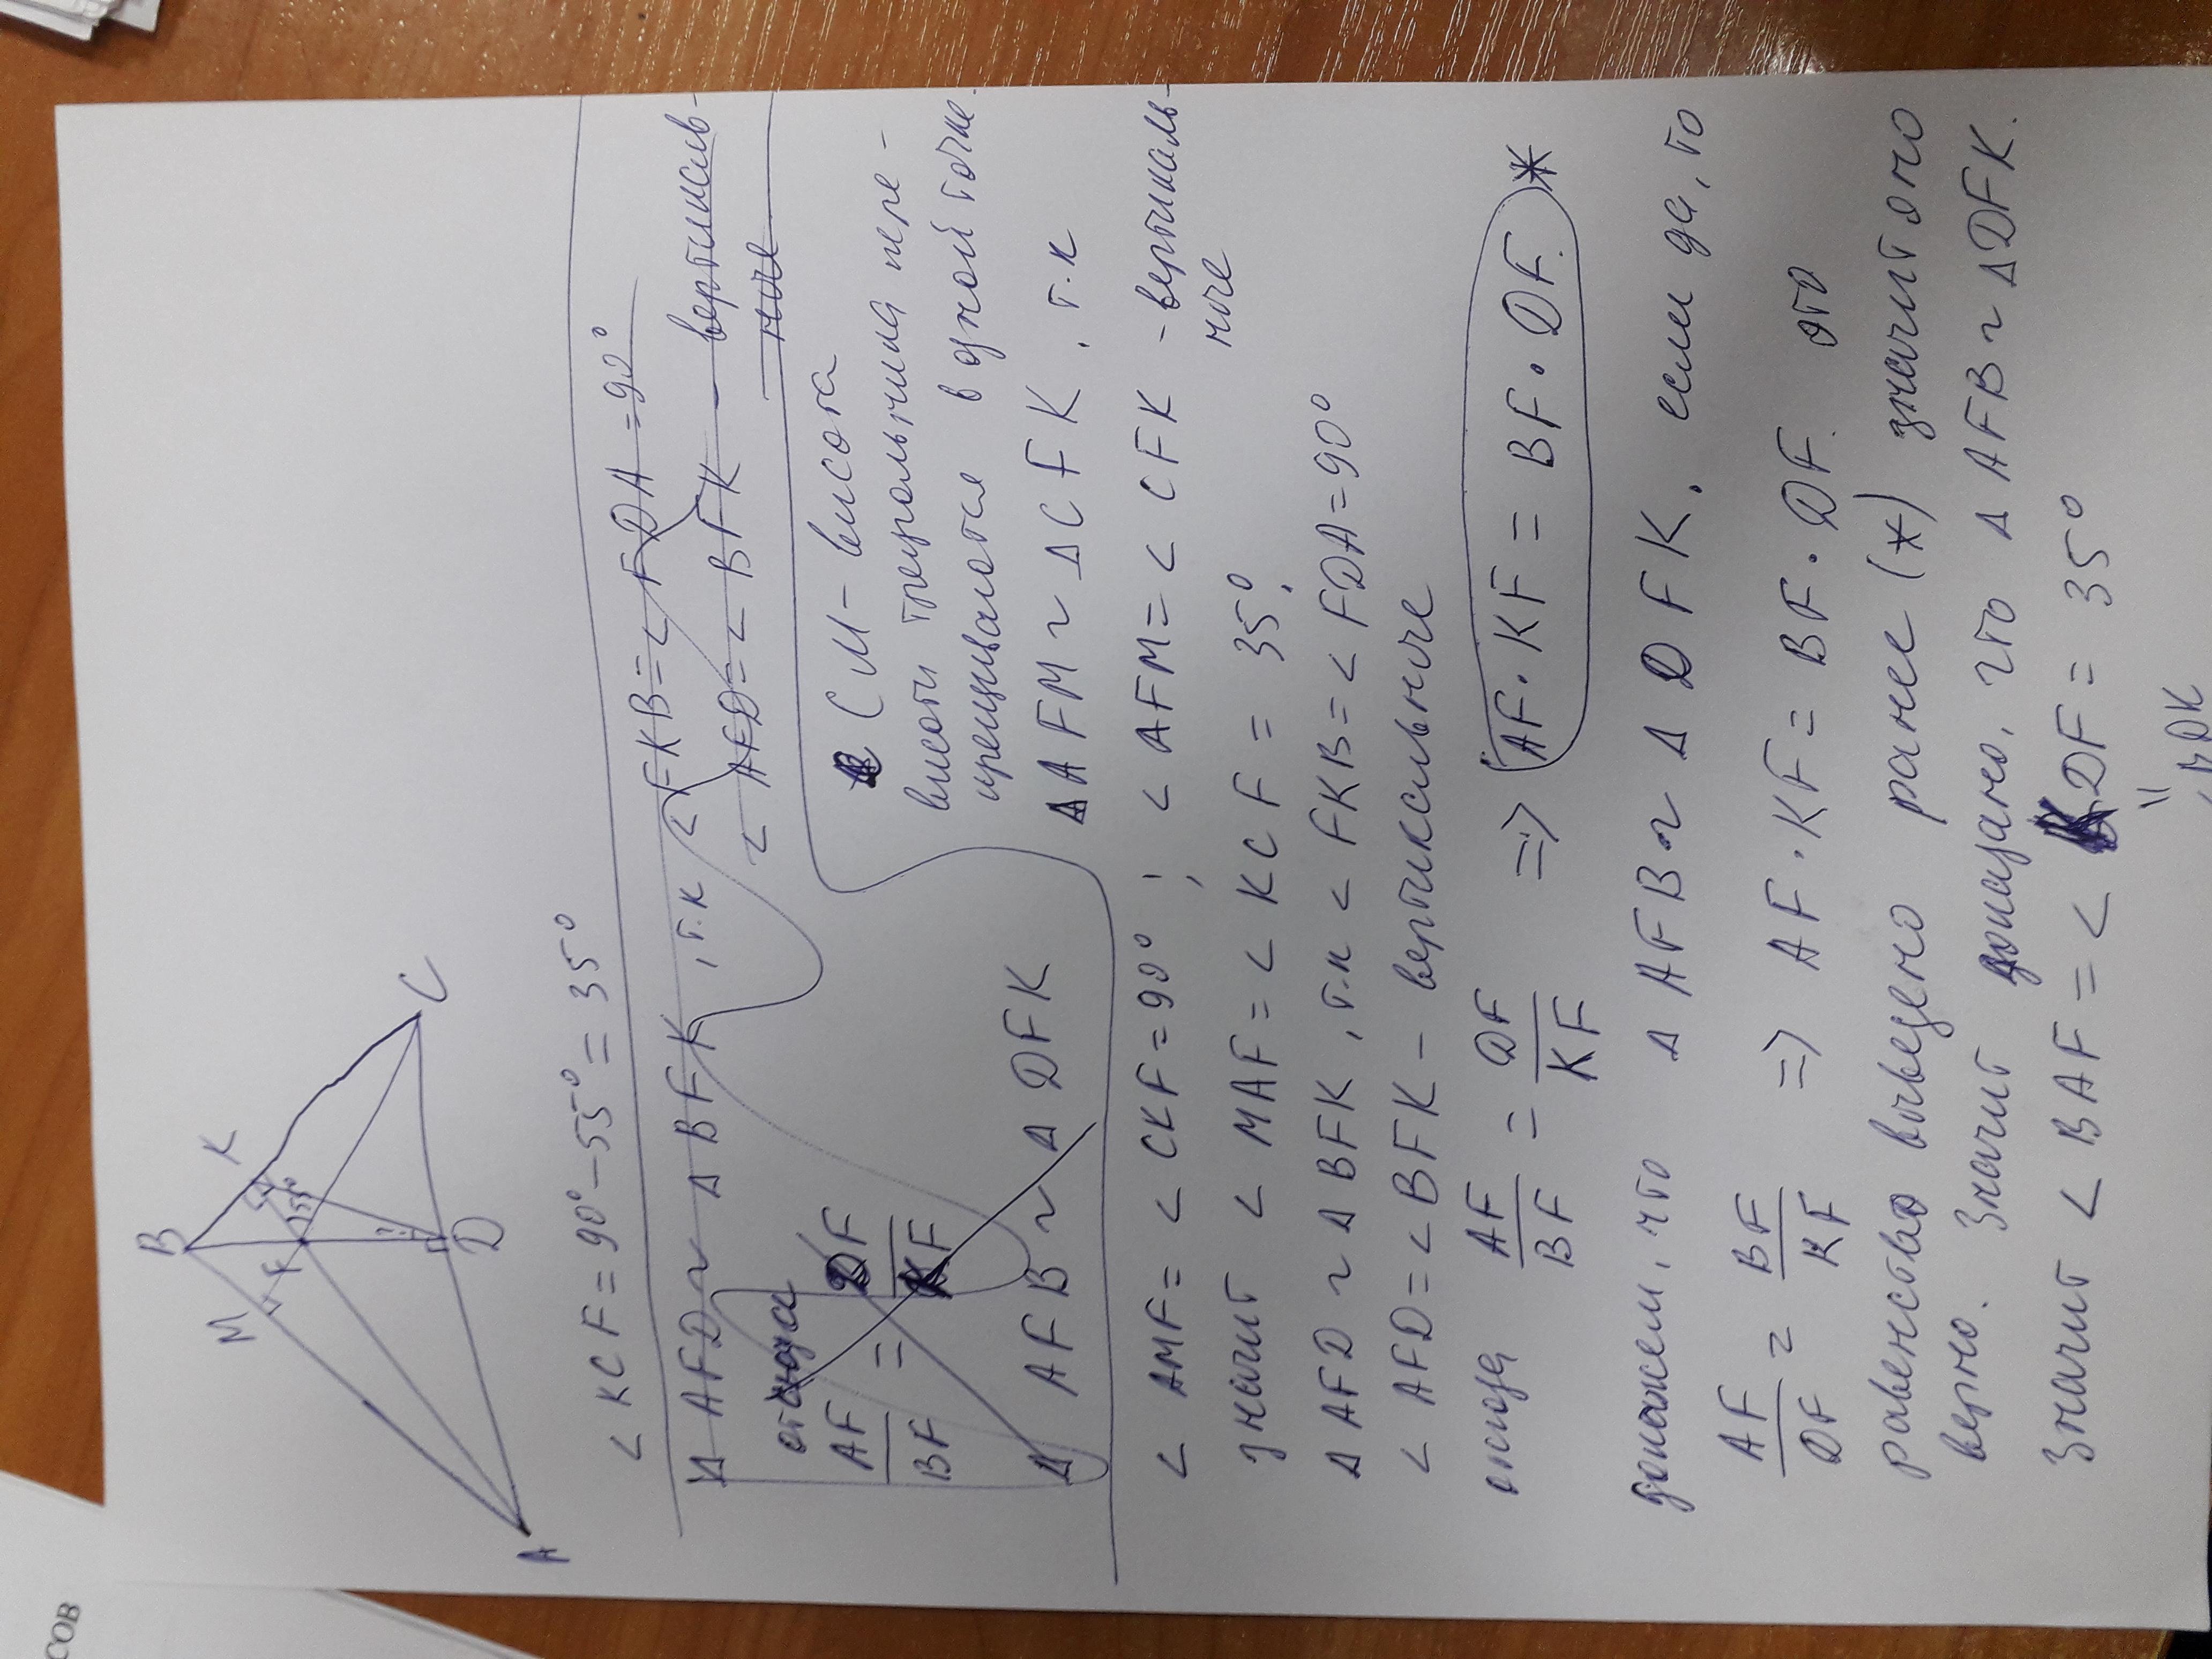 B
K
M
F
55°
C
D
A
∠ KCF = 90° - 55° = 35°
Δ AFD ~ Δ BFK, т.к ∠ FKB = ∠ FDA = 90°
∠ AFD = ∠ BFK - вертикаль-
ные
отсюда
AF/BF = DF/KF
Δ AFB ~ Δ DFK
CM - высота
высоты треугольника пере-
крещиваются в одной точке.
Δ AFM ~ Δ CFK, т.к
∠ AMF = ∠ CKF = 90°; ∠ AFM = ∠ CFK - вертикаль-
ные
значит ∠ MAF = ∠ KCF = 35°.
Δ AFD ~ Δ BFK, т.к ∠ FKB = ∠ FDA = 90°
∠ AFD = ∠ BFK - вертикальные
отсюда AF/BF = DF/KF => AF · KF = BF · DF. *
докажем, что Δ AFB ~ Δ DFK, если да, то
AF/DF = BF/KF => AF · KF = BF · DF. это
равенство выведено ранее (*) значит оно
верно. Значит доказано, что Δ AFB ~ Δ DFK.
Значит ∠ BAF = ∠ KDF = 35°
"
BDK
СОВ